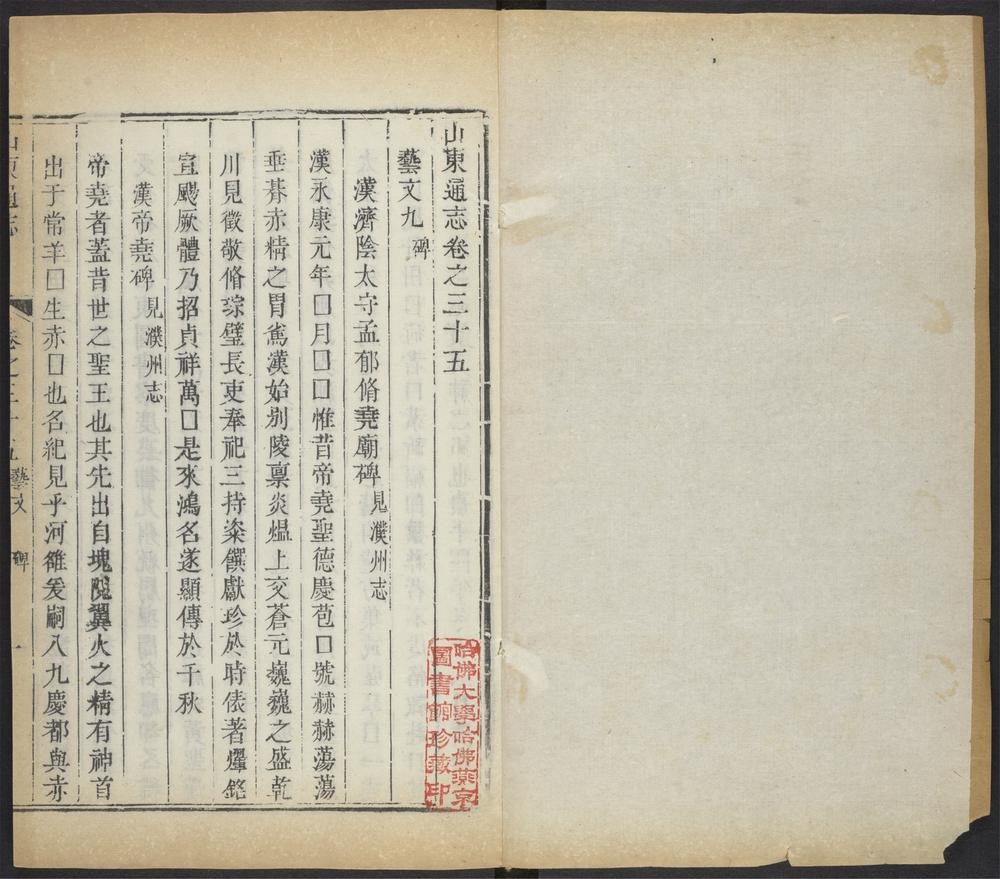 山東通志卷之三十五
藝文九 碑
漢濟陰太守孟郁脩堯廟碑 見濮州志
漢永康元年囗月囗囗惟昔帝堯聖德慶苞囗號赫赫蕩蕩
垂朞赤精之胃爲漢始别陵稟炎熅上交蒼元巍巍之盛乾
川見徵敬脩琮璧長吏奉祀三持粢饌獻珍於時俵著燿銘
宣颺厥體乃招貞祥萬囗是來鴻名遂顯傳於千秋
漢帝堯碑 見濮州志
帝堯者蓋昔世之聖王也其先出自塊隗翼火之精有神首
出于常羊囗生赤囗也名紀見乎河雒爰嗣八九慶都與赤
山東通志 卷之三十五 藝文 碑 一
哈佛大學哈佛燕京
圖書館珍藏印